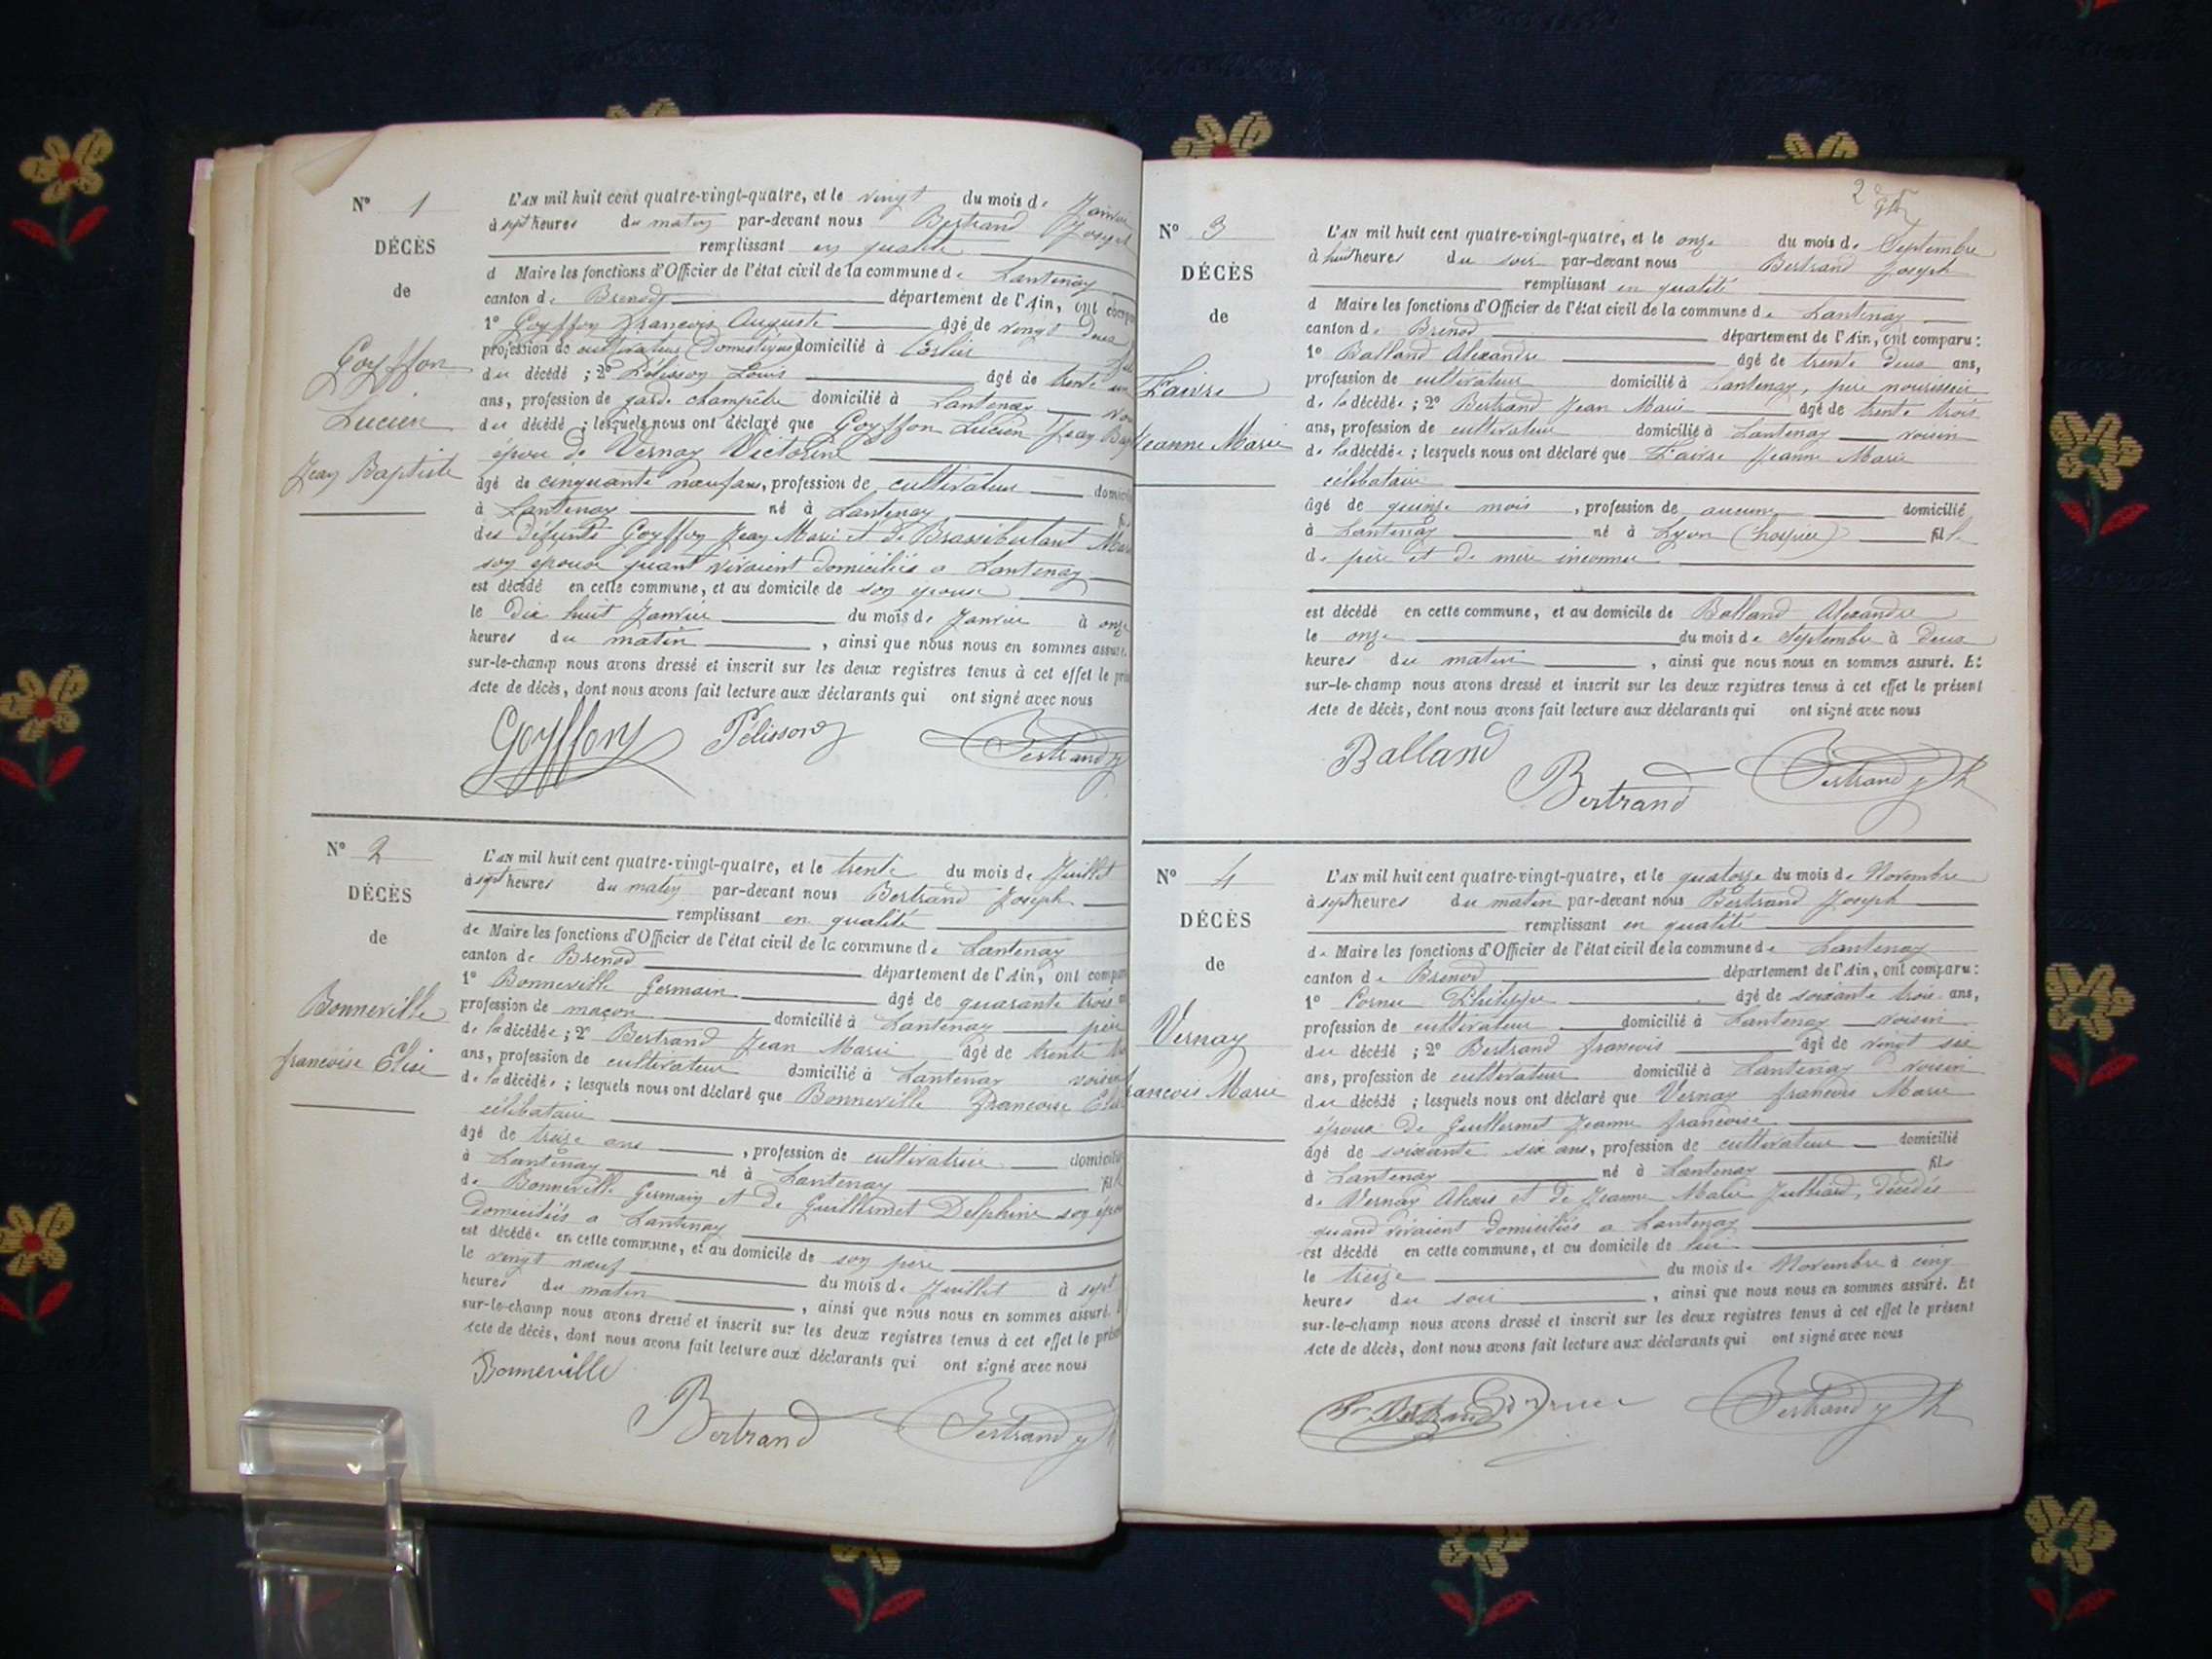 Nº 1
DÉCÈS
de
Goyffon
Lucien
Jean Baptiste
L'AN mil huit cent quatre-vingt-quatre, et le vingt du mois de Janvier
à sept heures du matin par-devant nous Bertrand Joseph
remplissant en qualité
d Maire les fonctions d'Officier de l'état civil de la commune de Lantenay
canton de Brenod département de l'Ain, ont
1º Goyffon François Auguste âgé de vingt deux
profession de cultivateur (Domestique) domicilié à
du décédé ; 2º Pélisson Louis âgé de trente un
ans, profession de garde champêtre domicilié à Lantenay
du décédé ; lesquels nous ont déclaré que Goyffon Lucien Jean
époux de Vernay Victorine
âgé de cinquante nœuf ans, profession de cultivateur
à Lantenay né à Lantenay
des défunts Goyffon Jean Marie et de Brassibutant
son épouse quant vivaient domiciliés a Lantenay
est décédé en cette commune, et au domicile de son épouse
le Dix huit Janvier du mois de Janvier à onze
heures du matin , ainsi que nous nous en sommes assuré.
sur-le-champ nous avons dressé et inscrit sur les deux registres tenus à cet effet le
Acte de décès, dont nous avons fait lecture aux déclarants qui ont signé avec nous
Goyffon Pélisson Bertrand
Nº 2
DÉCÈS
de
Bonneville
francoise Elise
L'AN mil huit cent quatre-vingt-quatre, et le trente du mois de Juillet
à sept heures du matin par-devant nous Bertrand Joseph
remplissant en qualité
de Maire les fonctions d'Officier de l'état civil de la commune de Lantenay
canton de Brenod département de l'Ain, ont
1º Bonneville Germain âgé de quarante trois
profession de maçon domicilié à Lantenay père
de la décédée ; 2º Bertrand Jean Marie âgé de trente
ans, profession de cultivateur domicilié à Lantenay voisin
de la décédée ; lesquels nous ont déclaré que Bonneville Francoise
célibataire
âgé de treize ans , profession de cultivatrice
à Lantenay né à Lantenay
de Bonneville Germain et de Guillermet Delphine son
domiciliés a Lantenay
est décédée en cette commune, et au domicile de son père
le vingt nœuf du mois de Juillet à sept
heures du matin , ainsi que nous nous en sommes assuré.
sur-le-champ nous avons dressé et inscrit sur les deux registres tenus à cet effet le
Acte de décès, dont nous avons fait lecture aux déclarants qui ont signé avec nous
Bonneville
Bertrand Bertrand
2
Nº 3
DÉCÈS
de
Jeanne Marie
L'AN mil huit cent quatre-vingt-quatre, et le onze du mois de Septembre
à huit heures du soir par-devant nous Bertrand Joseph
remplissant en qualité
d Maire les fonctions d'Officier de l'état civil de la commune de Lantenay
canton de Brenod département de l'Ain, ont comparu :
1º Balland Alexandre âgé de trente deux ans,
profession de cultivateur domicilié à Lantenay, père nourissier
de la décédée ; 2º Bertrand Jean Marie âgé de trente trois
ans, profession de cultivateur domicilié à Lantenay voisin
de la décédée ; lesquels nous ont déclaré que Jeanne Marie
célibataire
âgé de quinze mois , profession de aucune domicilié
à Lantenay né à Lyon (hospice) fille
de père et de mère inconnu
est décédé en cette commune, et au domicile de Balland Alexandre
le onze du mois de Septembre à Deux
heures du matin , ainsi que nous nous en sommes assuré. Et
sur-le-champ nous avons dressé et inscrit sur les deux registres tenus à cet effet le présent
Acte de décès, dont nous avons fait lecture aux déclarants qui ont signé avec nous
Balland
Bertrand Bertrand
Nº 4
DÉCÈS
de
Vernay
rancois Marie
L'AN mil huit cent quatre-vingt-quatre, et le quatorze du mois de Novembre
à sept heures du matin par-devant nous Bertrand Joseph
remplissant en qualité
de Maire les fonctions d'Officier de l'état civil de la commune de Lantenay
canton de Brenod département de l'Ain, ont comparu :
1º Cornu Philippe âgé de soixante trois ans,
profession de cultivateur domicilié à Lantenay voisin
du décédé ; 2º Bertrand francois âgé de vingt six
ans, profession de cultivateur domicilié à Lantenay voisin
du décédé ; lesquels nous ont déclaré que Vernay francois Marie
époux de Guillermet Jeanne francoise
âgé de soixante six ans, profession de cultivateur domicilié
à Lantenay né à Lantenay fils
de Vernay Alexis et de Jeanne Marie Julliard, décédés
quand vivaient domiciliés a Lantenay
est décédé en cette commune, et au domicile de lui
le treize du mois de Novembre à cinq
heures du soir , ainsi que nous nous en sommes assuré. Et
sur-le-champ nous avons dressé et inscrit sur les deux registres tenus à cet effet le présent
Acte de décès, dont nous avons fait lecture aux déclarants qui ont signé avec nous
Bertrand Cornu Bertrand